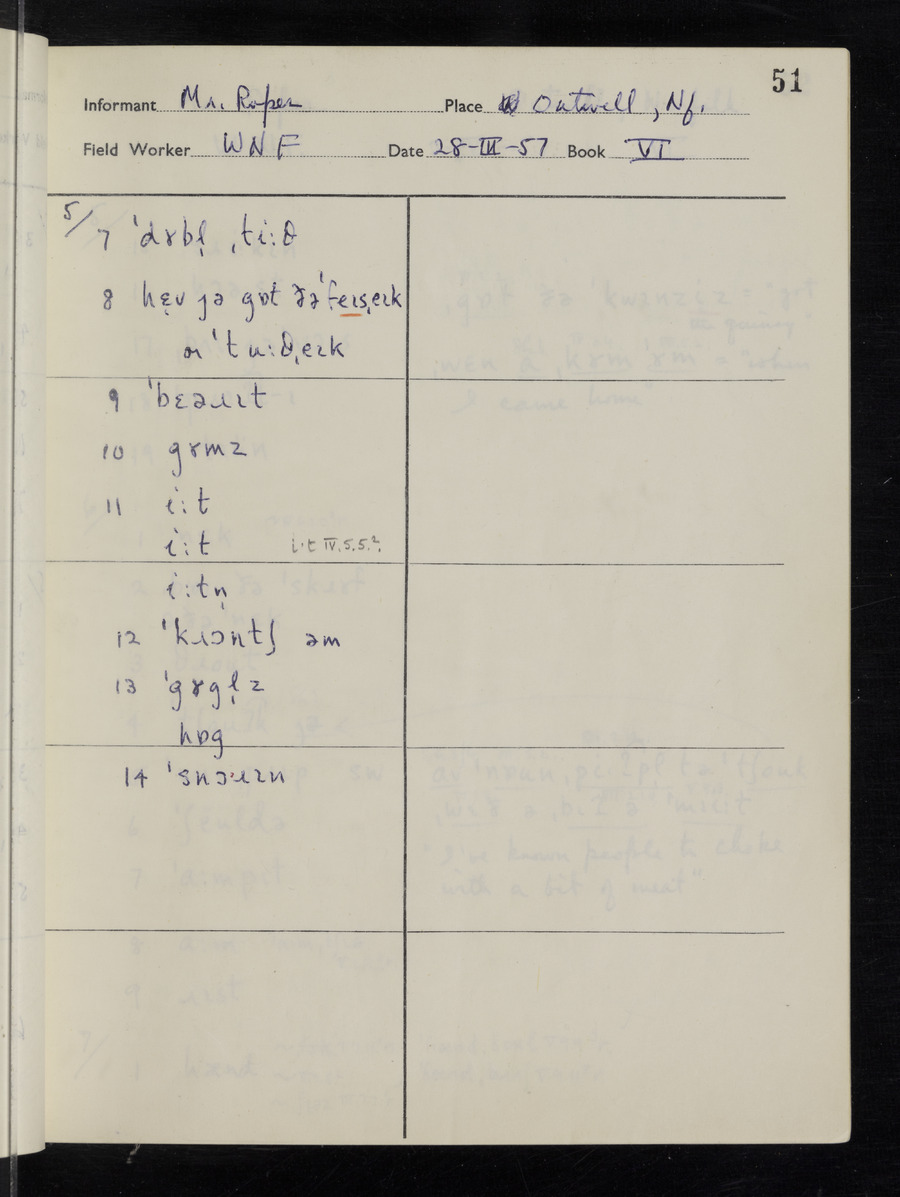 51
Informant Mr. Roper Place Outwell, Nf.
Field Worker WNF Date 28-III-57 Book VI
5/7 ˈdɤbl̩ ˌti:θ
8 hɛ̣v jə gɒt ðəˈfeɪsˌeɪk
or ˈtu:θˌeɪk
9 ˈbɛəɹɪt
10 gɤmz
11 i:t
i:t i·t IV.5.5².
i:tn̩
12 ˈkɹɔntʃ əm
13 ˈgɤgl̩z
hɒg
14 ˈsnɔ·ɹɪn